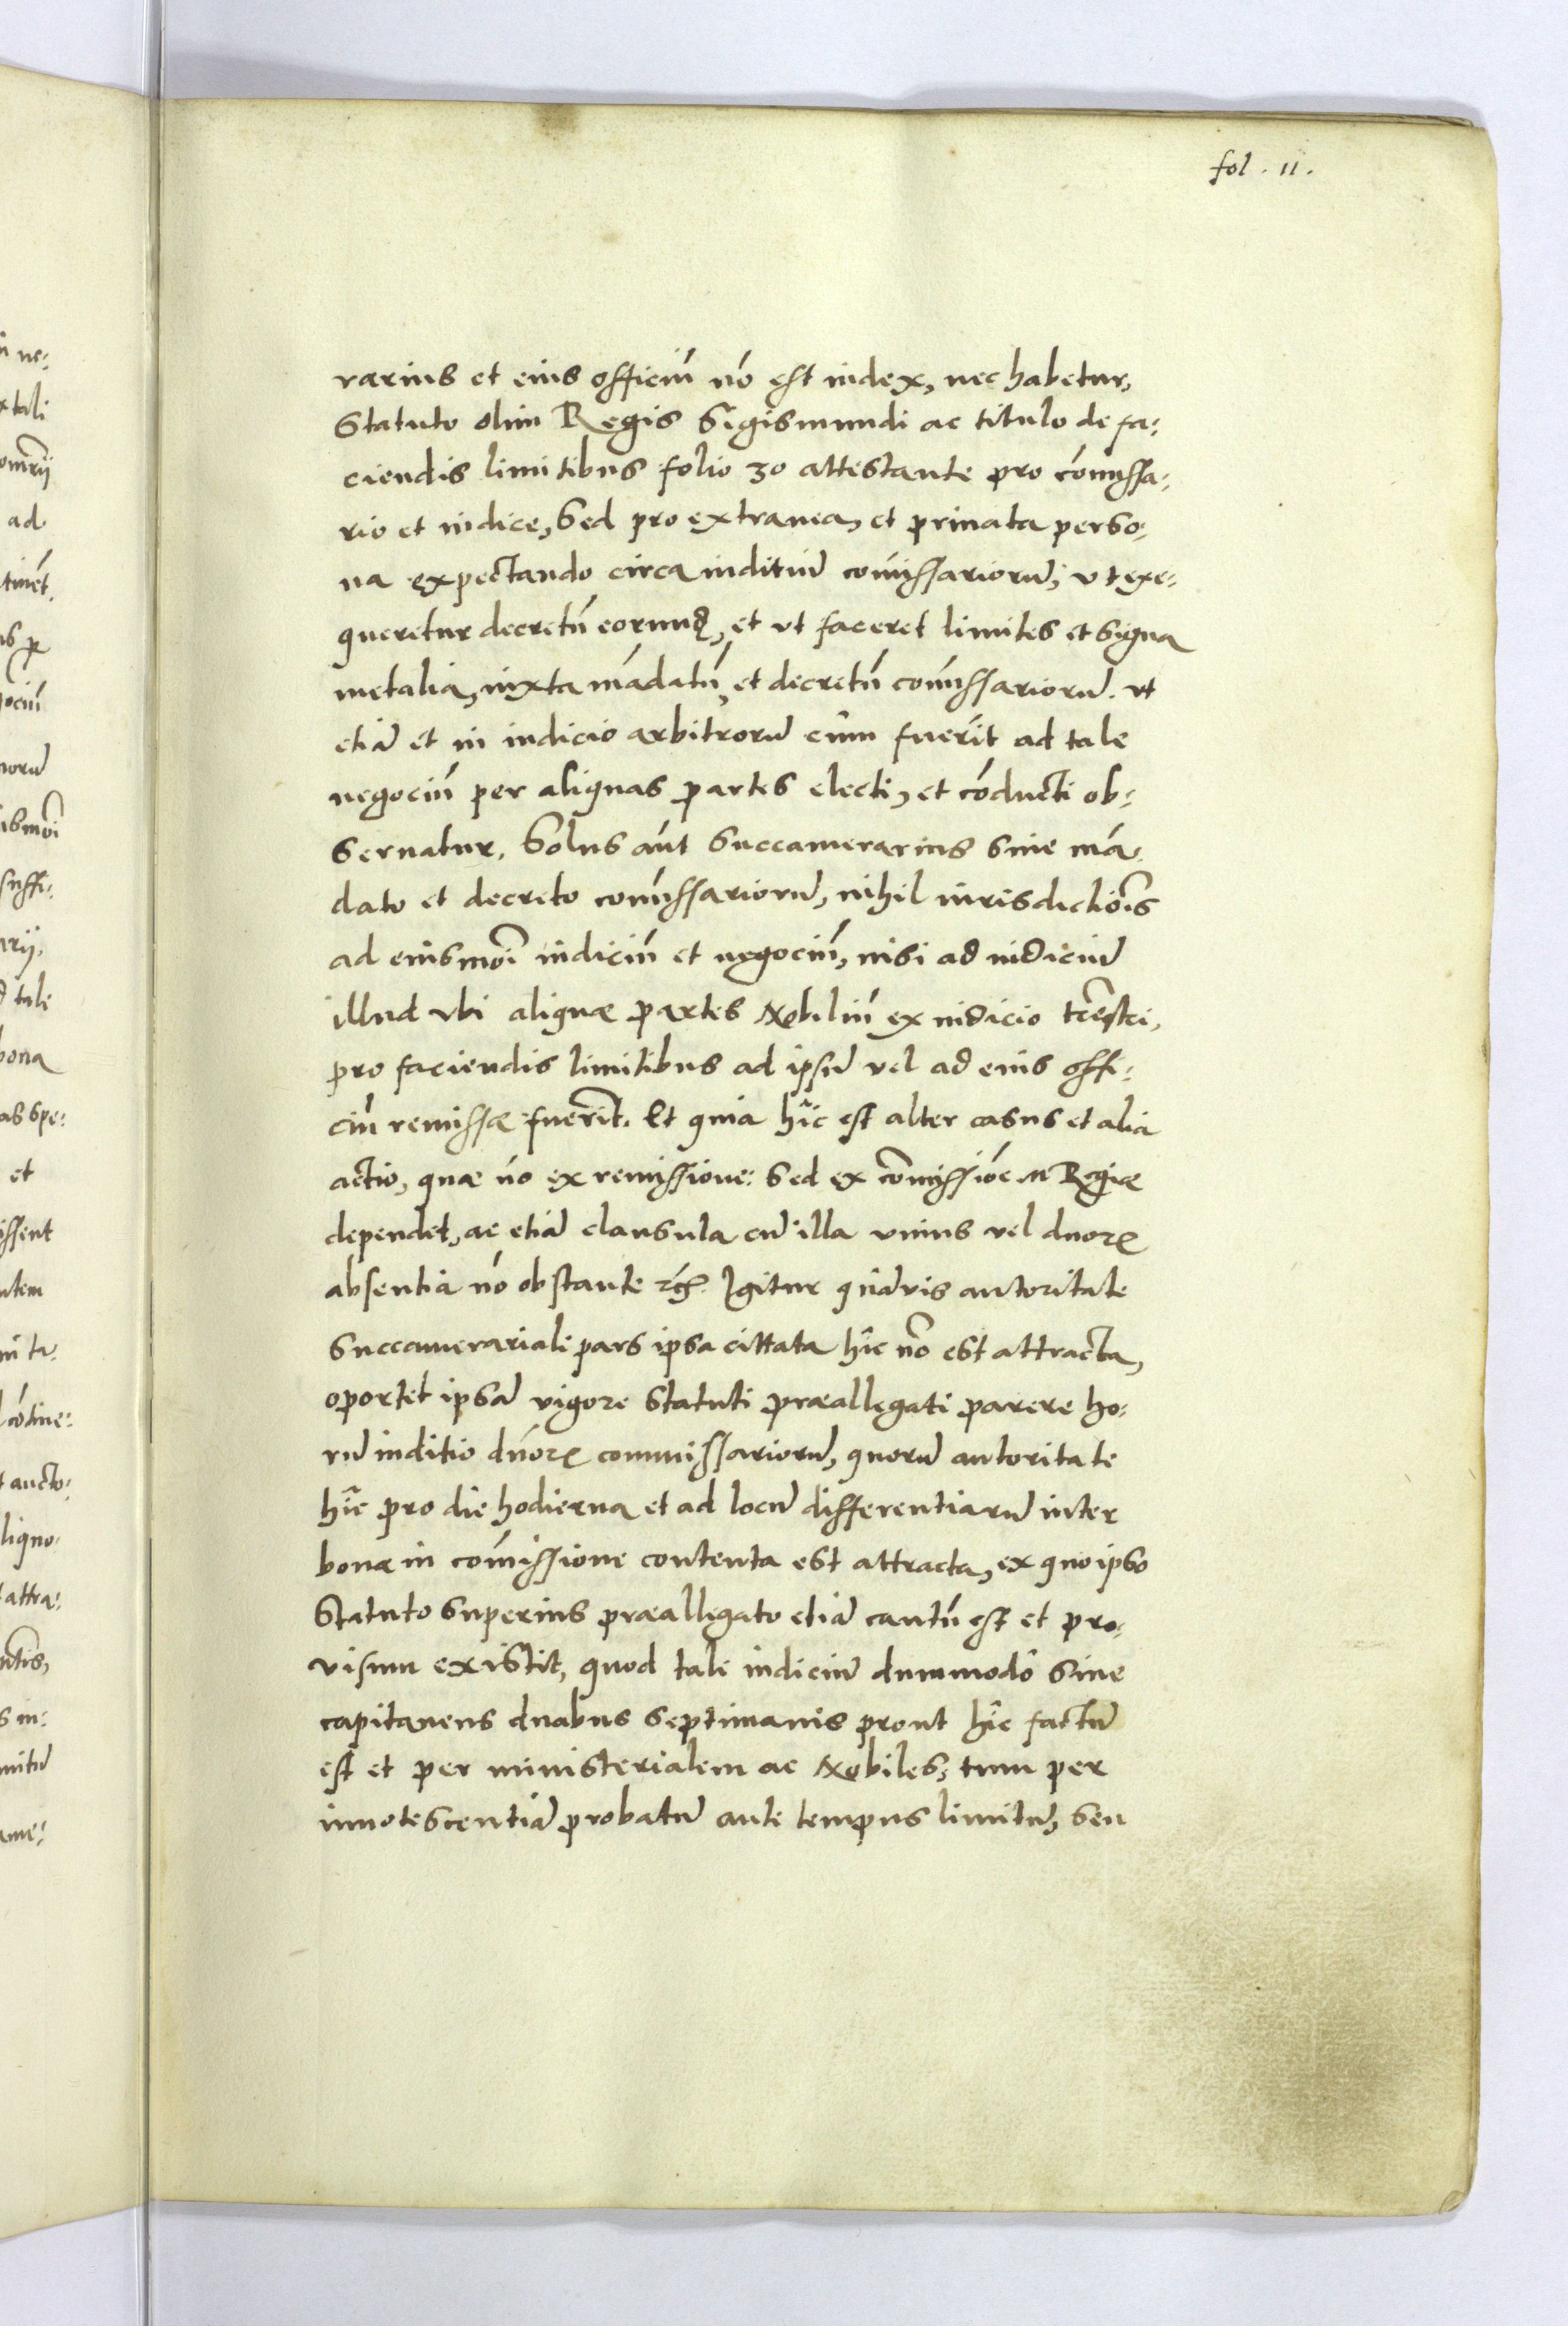 fol. 11.
rarius et eius officiũ nõ est iudex, nec habetur,
Statuto olim Regis Sigismundi ac titulo de fa:
ciendis limitibus folio 30 attestante pro cõmissa:
rio et iudice, Sed pro extranea, et priuata perso:
na expectando circa iuditiũ cõmissariorũ, ut exe:
queretur decretũ eorund, et ut faceret limites et signa
metalia, iuxta mãdatũ et decretũ cõmissariorũ. ut
etiã et in iudicio arbitrorũ cũm fuerĩt ad tale
negociũ per aliquas partes electi, et cõducti ob:
seruatur. Solus aũt Succamerarius sine mã
dato et decreto cõmissariorũ, nihil iurisdictiõis
ad eiusmõi iudiciũ et negociũ, nisi ad iudiciũ
illud ubi aliquæ partes Nobiliũ ex iudicio trẽstri,
pro faciendis limitibus ad ipsũ vel ad eius offi:
ciũ remissæ fuerĩt. Et quia hîc est alter casus et alia
actio, quæ nõ ex remissione: Sed ex cõmissiõe M Regiæ
dependet, ac etiã clausula cũ illa unius vel duorꝝ
absentia nõ obstante etc̃. Igitur quãvis autoritate
Succamerariali pars ipsa cittata hîc nõ est attracta,
oportet ipsã vigore Statuti præallegati parere ho:
rũ iuditio dñorꝝ commissariorũ, quorũ autoritate
hîc pro die hodierna et ad locũ differentiarũ inter
bona in cõmissione contenta est attracta, ex quo ipso
Statuto superius præallegato etiã cautũ est et pro:
visum existit, quod tale iudiciũ dummodò sine
capitaneus duabus septimanis prout hîc factũ
est et per ministerialem ac Nobiles, tum per
innotescentiã probatũ ante tempus limitũ, seu